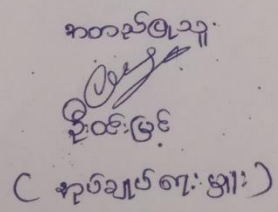 အတည်ပြုသူ
ဦးထိန်မြင့်
(အုပ်ချုပ်ရေးမှူး)